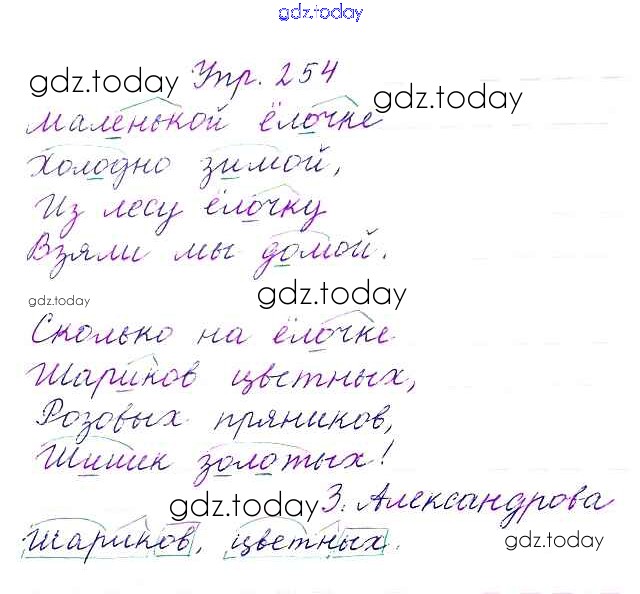 gdz.today
gdz.today Упр. 254
gdz.today
маленькой ёлочке
Холодно зимой,
Из лесу ёлочку
Взяли мы домой.
gdz.today gdz.today
Сколько на ёлочке
Шариков цветных,
Розовых пряников,
Шишек золотых!
gdz.today З. Александрова
Шариков, цветных.
gdz.today